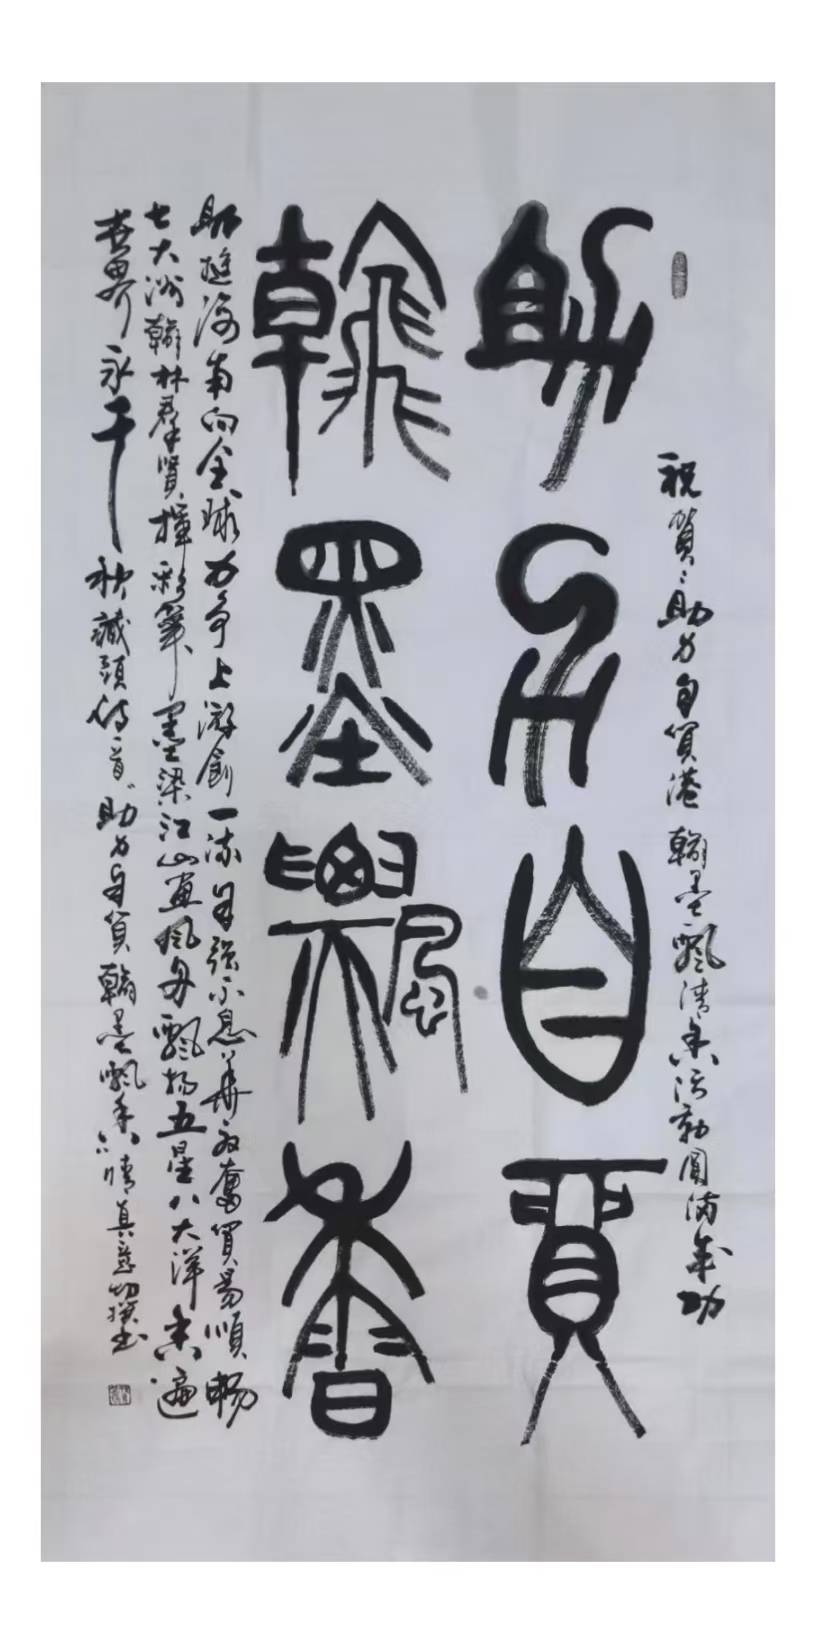 祝賀：助力自貿港翰墨飄清香活動圓滿成功
助力自貿
翰墨飄香
助挺海南向全球力争上游創一流自强不息華夏奮貿易順暢
七大洲翰林群賢揮彩筆墨染江山畫風飄揚五星八大洋香遍
世界永千秋藏頭詩一首助力自貿翰墨飄香情真意切撰书